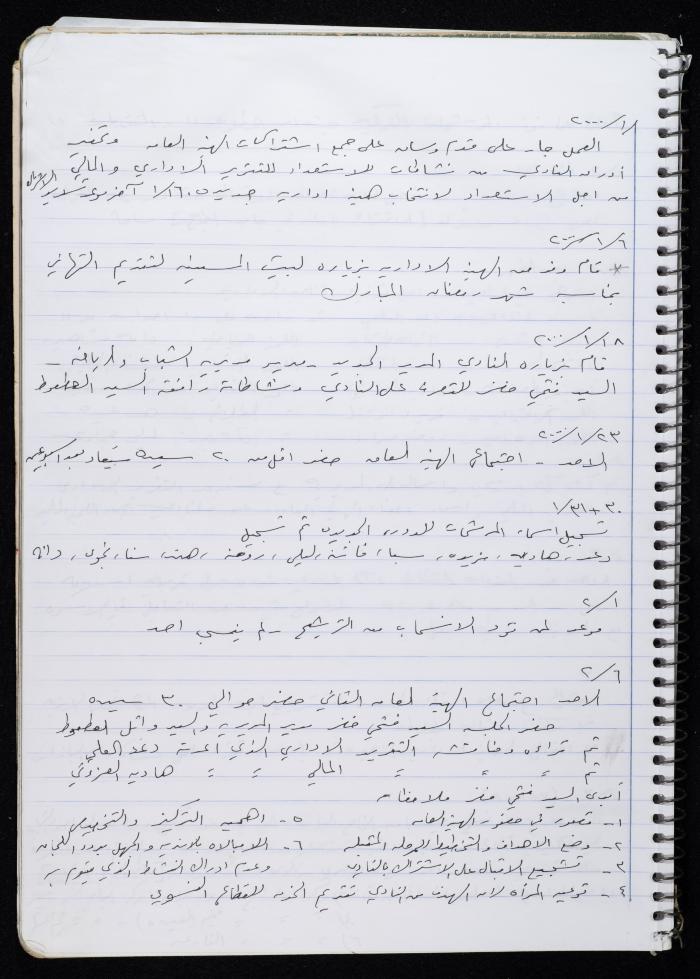 ٢٠٠٠/١/١
العمل جار على قدم وساق على جمع اشتراكات الهيئة العامة
أوراق النادي من نشاطات للاستعداد للتقرير الاداري والمالي
من اجل الاستعداد لانتخاب هيئة ادارية جديدة ١/١٦ آخر موعد
٢٠٠٠/١/٦
* قام وفد من الهيئة الادارية بزيارة لبيت المسنين لتقديم التهاني
بمناسبة شهر رمضان المبارك
٢٠٠٠/١/١٨
قام بزيارة النادي المدير الجديد - مدير مديرية الشباب والرياضة -
السيد فتحي خضر للتعرف على النادي ونشاطاته رافقه السيد
٢٠٠٠/١/٢٣
الاحد - اجتماع الهيئة العامة حضر اقل من ٢٠ سيدة سيعاد بعد اسبوعين
٣٠+١/٣١
تسجيل اسماء المرشحات للدورة الجديدة تم تسجيل
دعد، هادية، فريدة، سبا، فاتنة، ليلى، روضة، هند، سناء، نجوى،
٢/١
موعد لمن تود الانسحاب من الترشيح - لم ينسحب احد
٢/٦
الاحد اجتماع الهيئة العامة الثاني حضر حوالي ٣٠ سيدة
حضر الجلسة السيد فتحي خضر مدير المديرية والسيد وائل
تم قراءة ومناقشة التقرير الاداري الذي أعدته دعد
تم = = المالي = = هادية
أبدى السيد فتحي خضر ملاحظات
١- قصور في حضور الهيئة العامة
٢- وضع الاهداف والتخطيط للمرحلة المقبلة
٣- تشجيع الاقبال على الاشتراك بالنادي
٤- توعية المرأة لان الهدف من النادي تقديم الخدمة للقطاع النسوي
٥- اهمية التركيز
٦- اللامبالاة بالاندية والجهل بدور اللجان
وعدم ادراك النشاط الذي تقوم به